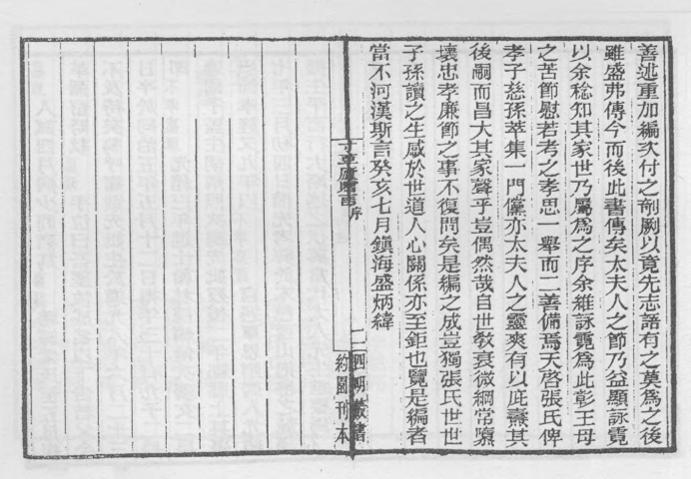 善述重加編次付之剞劂以竟先志語有之莫爲之後
雖盛弗傳今而後此書傳矣太夫人之節乃益顯詠霓
以余稔知其家世乃屬爲之序余維詠霓爲此彰王母
之苦節慰若考之孝思一舉而二善備焉天啓張氏俾
孝子慈孫萃集一門儻亦太夫人之靈爽有以庇燾其
後嗣而昌大其家聲乎豈偶然哉自世敎衰微綱常隳
壞忠孝廉節之事不復問矣是編之成豈獨張氏世世
子孫讀之生感於世道人心關係亦至鉅也覽是編者
當不河漢斯言癸亥七月鎭海盛炳緯
寸草廬贈言 序
二 四明叢書
約園刊本